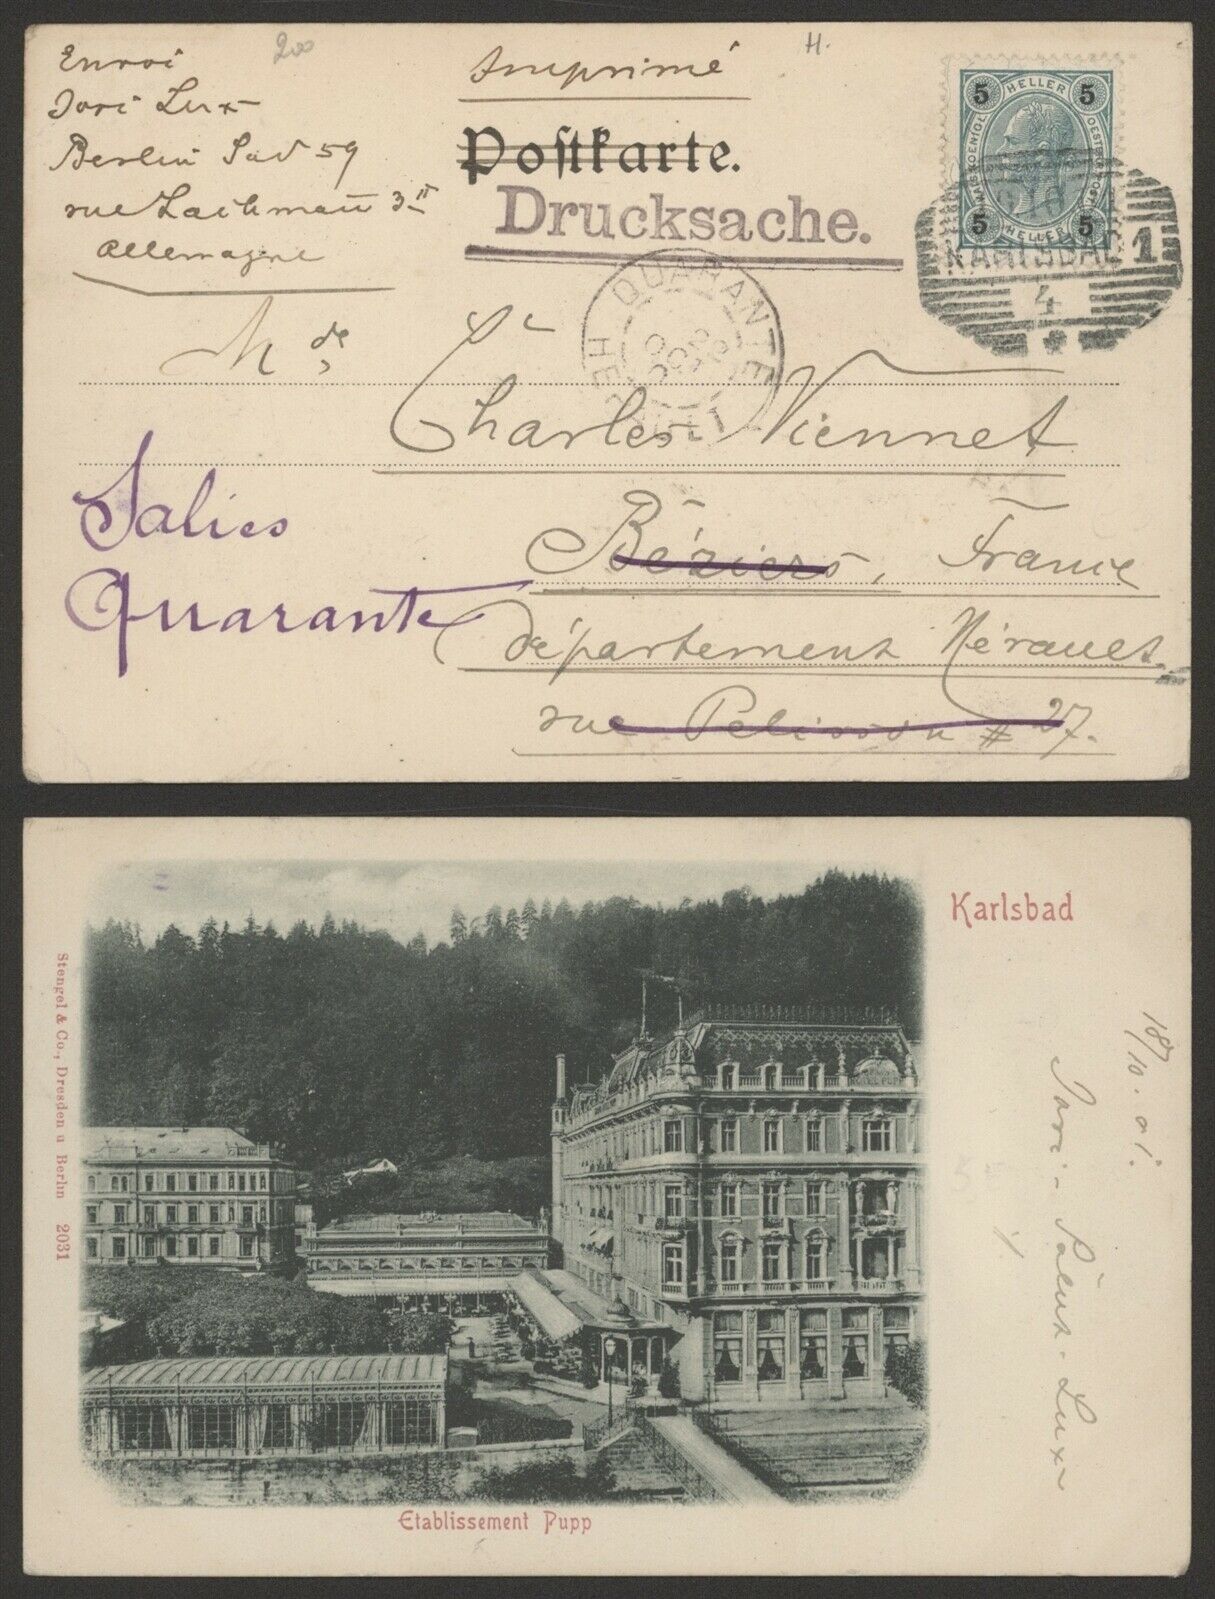 200
H.
Envoi
Lux
Berlin Süd 59
rue Lachmann 3 II
Allemagne
Imprimé
Postkarte.
Drucksache.
5 HELLER 5
5 HELLER 5
KARLSBAD 1
4
QUARANTE
HERAULT
Mde
Charles Viennet
Béziers, France
département Hérault
rue Pelisson # 27.
Salies
Quarante
Karlsbad
18/10. 01.
Lux
Stengel & Co., Dresden u Berlin 2031
HOTEL PUPP
Etablissement Pupp